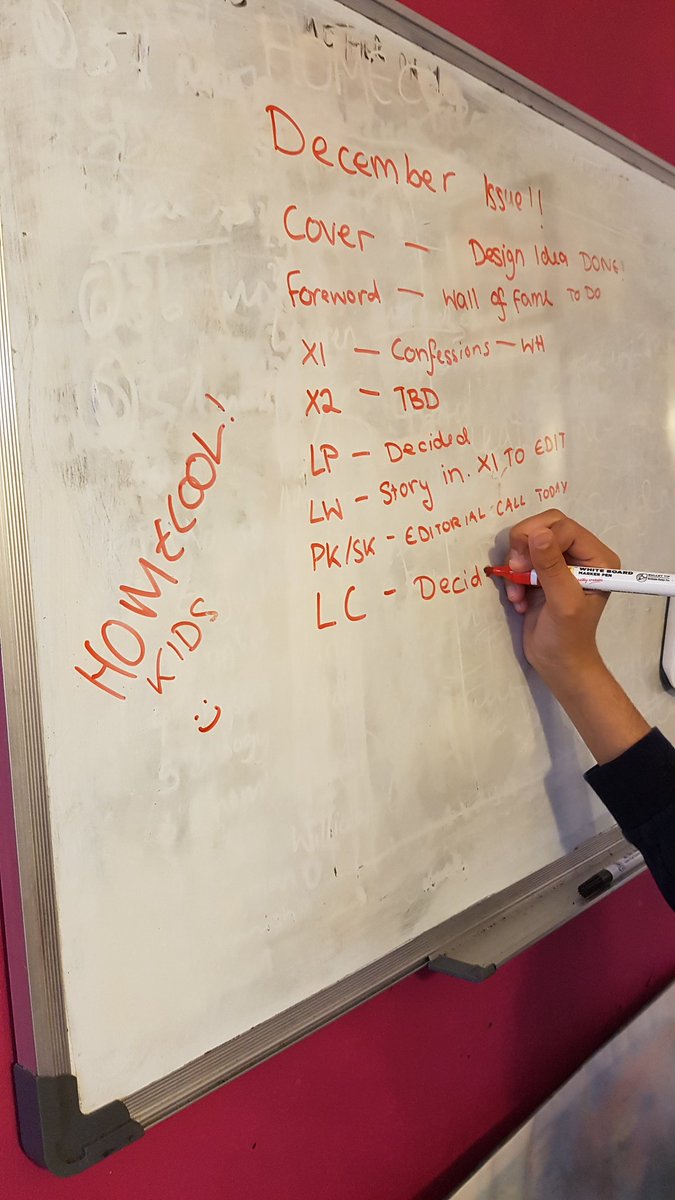 December Issue!!
Cover - Design Idea DONE!
Foreword - Wall of fame TO DO
X1 - Confessions - WH
X2 - TBD
LP - Decided
LW - Story in. X1 TO EDIT
PK/SK - EDITORIAL CALL TODAY
LC - Decid
HOMECOOL!
KIDS
:)
WHITE BOARD
MARKER PEN
BULLET TIP
HOMEC